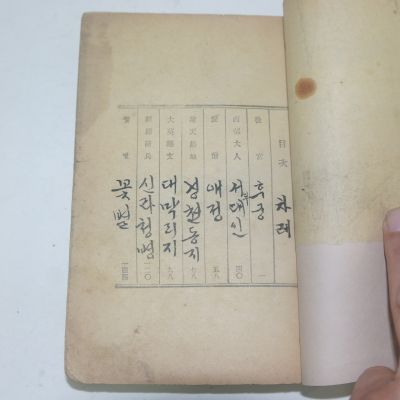 目次 차례
後宮 후궁 一
西部大人 서부대인 四〇
愛情 애정 五八
驚天動地 경천동지 七八
大莫離支 대막리지 九八
新羅請兵 신라청병 一二〇
꽃별 一四四